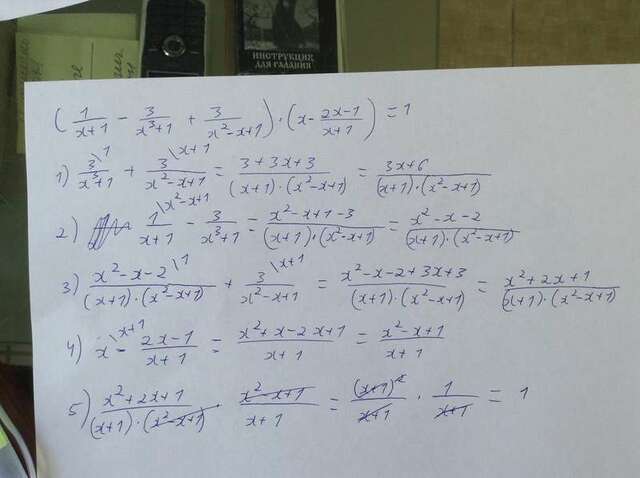 ИНСТРУКЦИЯ
ДЛЯ ГАДАНИЯ
(1/(x+1) - 3/(x³+1) + 3/(x²-x+1)) · (x - (2x-1)/(x+1)) = 1
1) 3\1/(x³+1) + 3\x+1/(x²-x+1) = (3+3x+3)/((x+1)·(x²-x+1)) = (3x+6)/((x+1)·(x²-x+1))
2) 1\x²-x+1/(x+1) - 3/(x³+1) = (x²-x+1-3)/((x+1)·(x²-x+1)) = (x²-x-2)/((x+1)·(x²-x+1))
3) (x²-x-2)\1/((x+1)·(x²-x+1)) + 3\x+1/(x²-x+1) = (x²-x-2+3x+3)/((x+1)·(x²-x+1)) = (x²+2x+1)/((x+1)·(x²-x+1))
4) x\x+1 - (2x-1)/(x+1) = (x²+x-2x+1)/(x+1) = (x²-x+1)/(x+1)
5) (x²+2x+1)/((x+1)·(x²-x+1)) · (x²-x+1)/(x+1) = (x+1)²/(x+1) · 1/(x+1) = 1